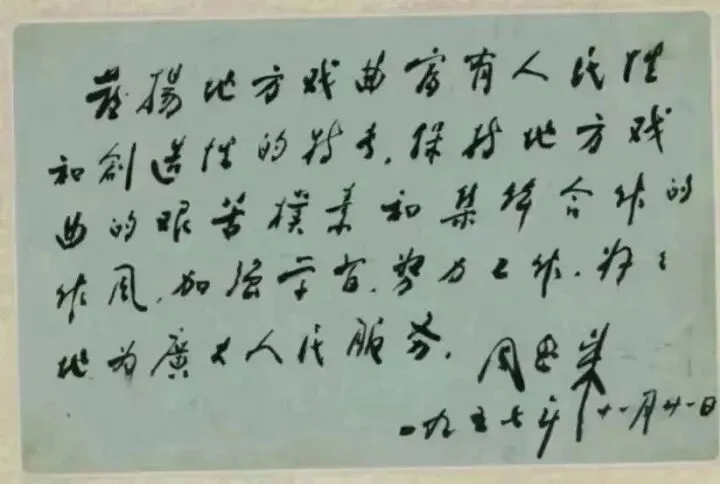 發揚地方戏曲富有人民性
和創造性的特长，保持地方戏
曲的艰苦樸素和集体合作的
作风，加强学習，努力工作，好々
地为廣大人民服务。周恩来
一九五七年十一月廿一日